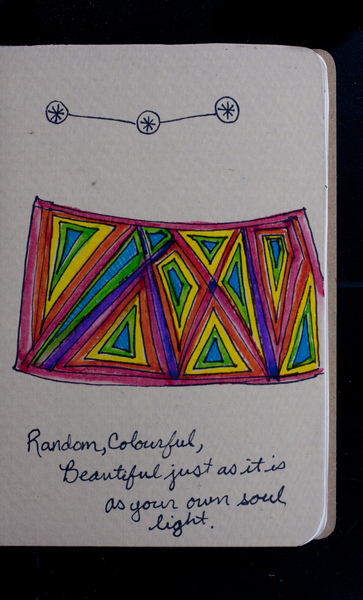 Random, Colourful,
Beautiful just as it is
as your own soul
light.